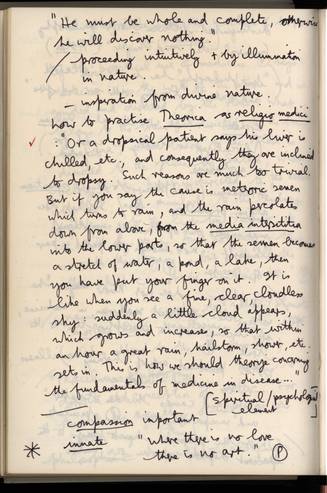 "He must be whole and complete, otherwise
he will discover nothing."
/ proceeding intuitively + by illumination
in nature.
– inspiration from divine nature.
how to practise Theorica as religio medici
: "Or a dropsical patient says his liver is
chilled, etc., and consequently they are inclined
to dropsy. Such reasons are much too trivial.
But if you say the cause is meteoric semen
which turns to rain, and the rain percolates
down from above, from the media interstitia
into the lower parts, so that the semen becomes
a stretch of water, a pond, a lake, then
you have put your finger on it. It is
like when you see a fine, clear, cloudless
sky: suddenly a little cloud appears,
which grows and increases, so that within
an hour a great rain, hailstorm, shower, etc.
sets in. This is how we should theorize concerning
the fundamentals of medicine in disease..."
[spiritual/psychological
element
compassion important
innate "Where there is no love
there is no art." P